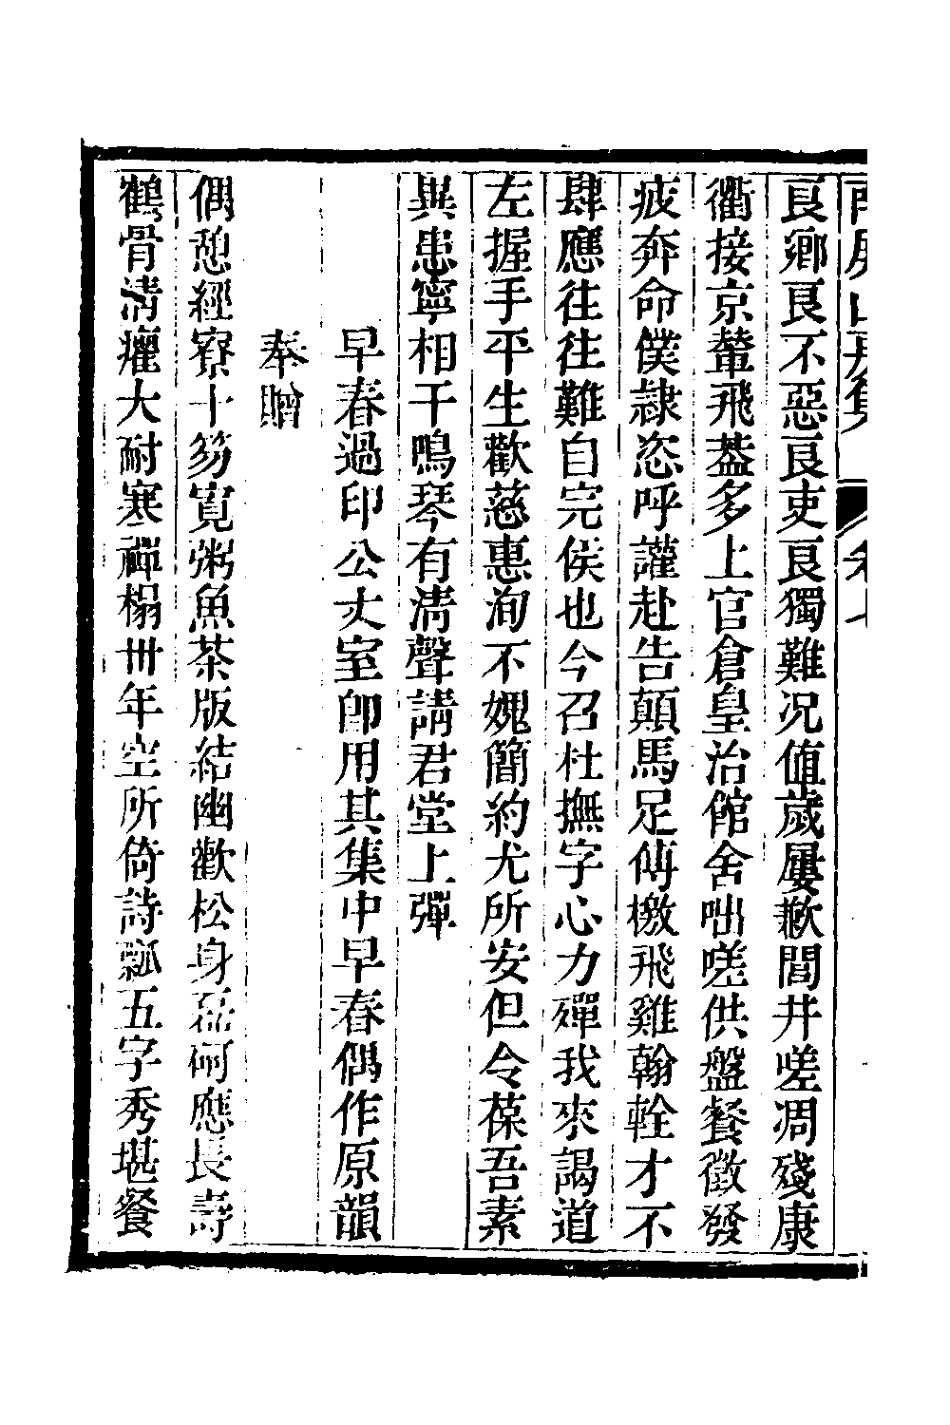 良鄉良不惡良吏良獨難况值歲屢歉間井嗟凋殘康
衢接京輦飛葢多上官倉皇治館舍咄嗟供盤餐徵發
疲奔命僕隷恣呼讙赴告顛馬足傅檄飛雞翰輇才不
肆應往往難自完侯也今召杜撫字心力殫我來謁道
左握手平生歡慈惠洵不媿簡約尤所安但令葆吾素
異患寧相干鳴琴有淸聲請君堂上彈
早春過印公丈室卽用其集中早春偶作原韻
奉贈
偶憩經寮十笏寬粥魚茶版結幽歡松身磊砢應長壽
鶴骨淸癯大耐寒禪榻卅年空所倚詩瓢五字秀堪餐